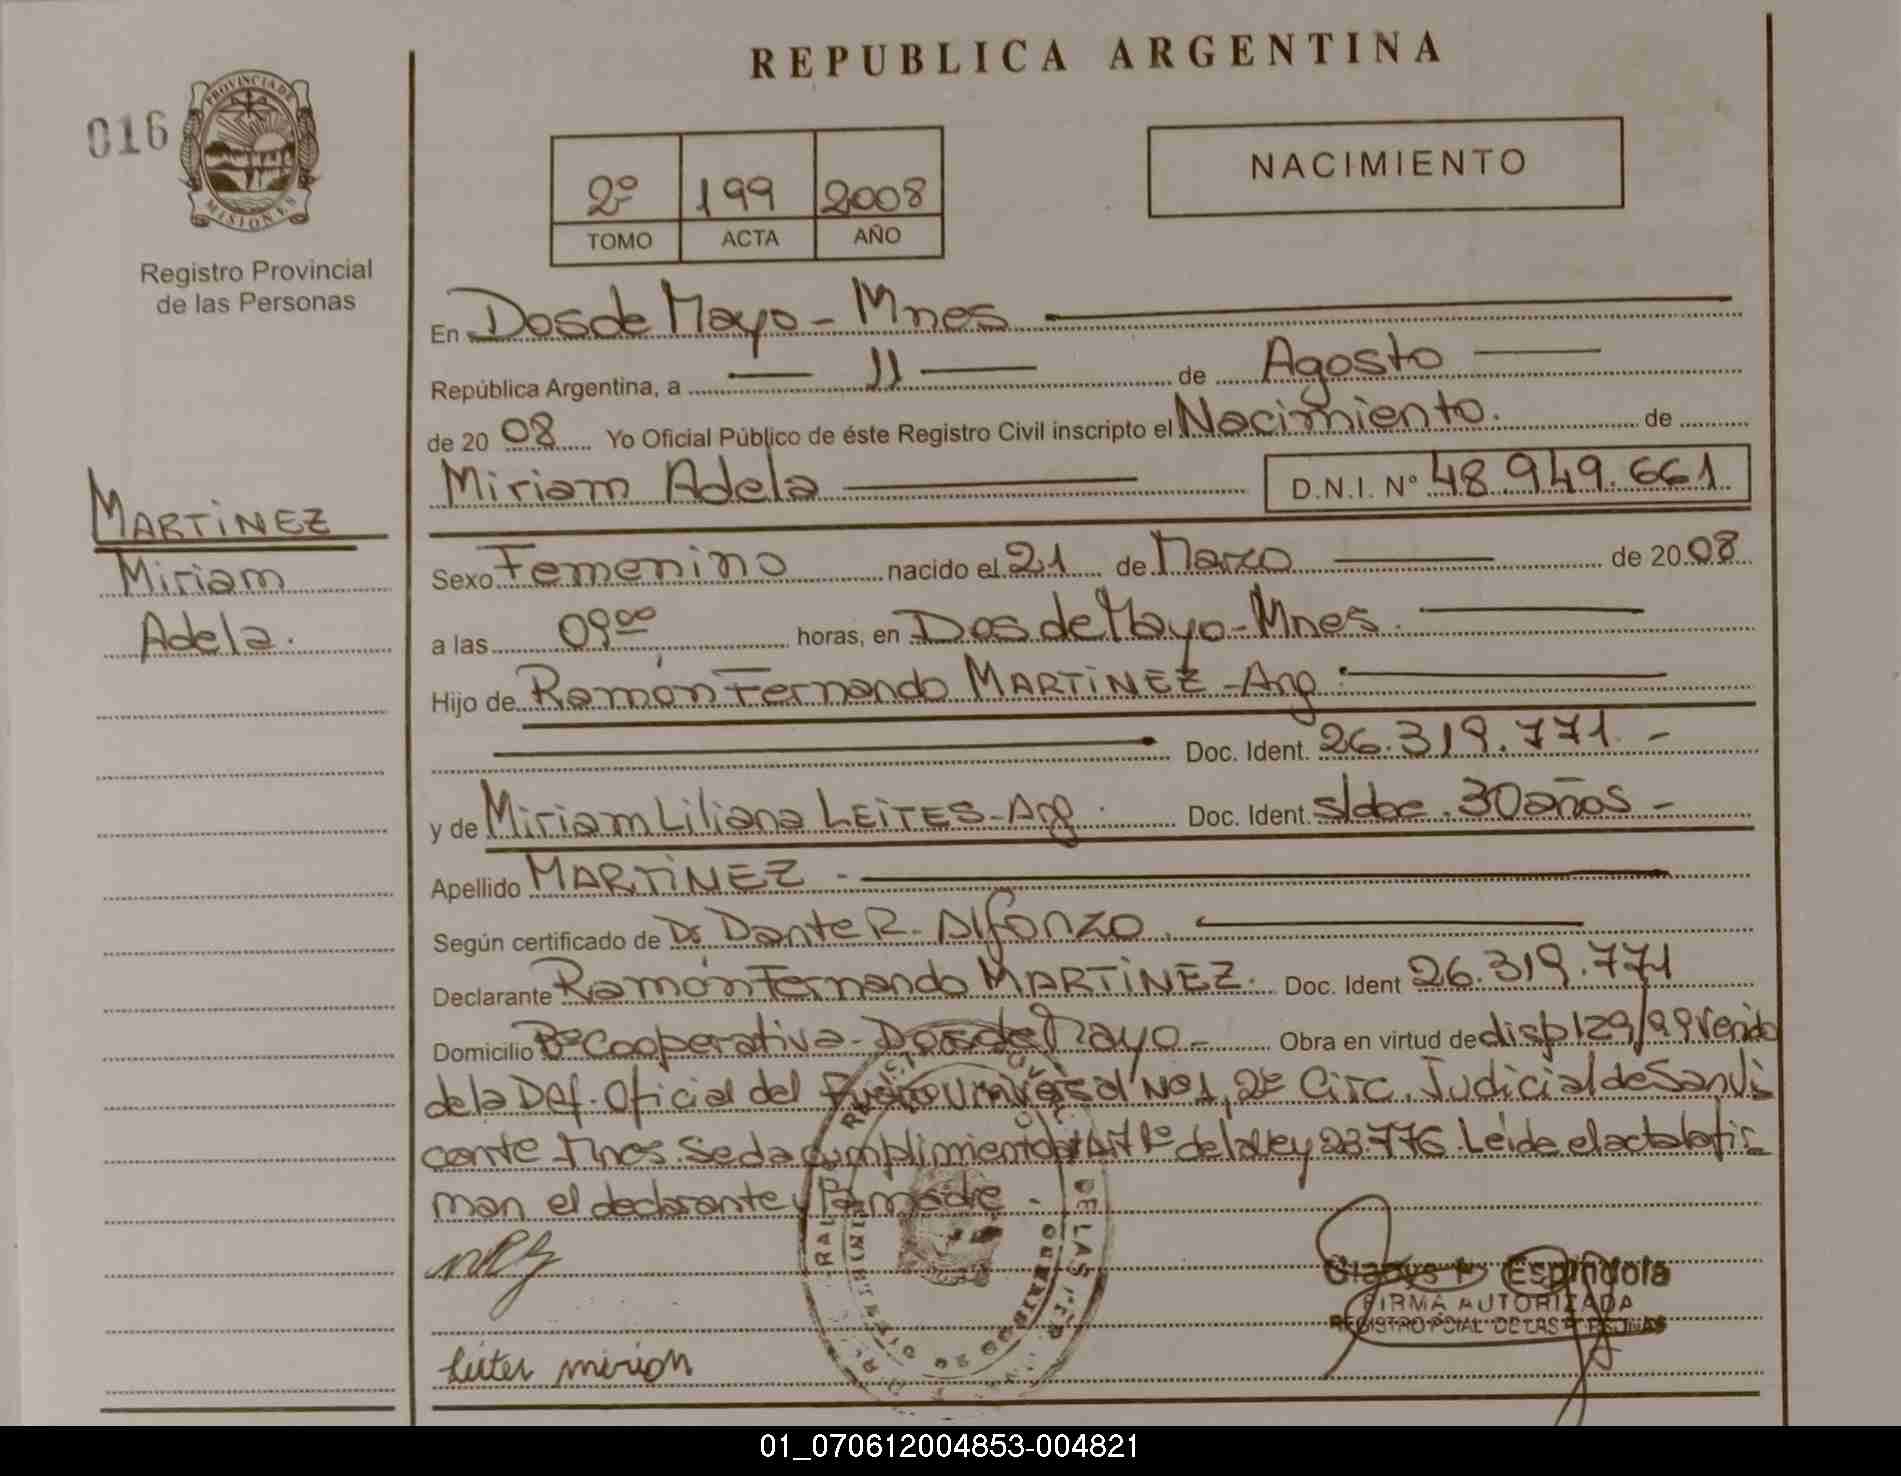 REPUBLICA ARGENTINA
016
PROVINCIA DE
MISIONES
Registro Provincial
de las Personas
2º 199 2008
TOMO ACTA AÑO
NACIMIENTO
En Dos de Mayo - Mnes
República Argentina, a 11 de Agosto
de 20 08 Yo Oficial Público de éste Registro Civil inscripto el Nacimiento. de
Miriam Adela D.N.I. Nº 48.949.661
MARTINEZ
Miriam
Adela.
Sexo Femenino nacido el 21 de Marzo de 20 08
a las 09 00 horas, en Dos de Mayo - Mnes.
Hijo de Ramón Fernando MARTINEZ - Arg.
Doc. Ident. 26.319.771 -
y de Miriam Liliana LEITES - Arg. Doc. Ident. s/doc. 30 años -
Apellido MARTINEZ -
Según certificado de Dr Dante R. Alfonzo.
Declarante Ramón Fernando MARTINEZ. Doc. Ident 26.319.771
Domicilio Bº Cooperativa - Dos de Mayo - Obra en virtud de disp 129/99 Venido
de la Def. Oficial del Nº 1, 2º Circ. Judicial de San Vi
cente Mnes. Se da cumplimiento Art 1º de la ley 23.776. Leida el acta la fir
man el declarante y la madre -
Gladys Espindola
FIRMA AUTORIZADA
REGISTRO PCIAL DE LAS PERSONAS
Leites mirian
01_070612004853-004821